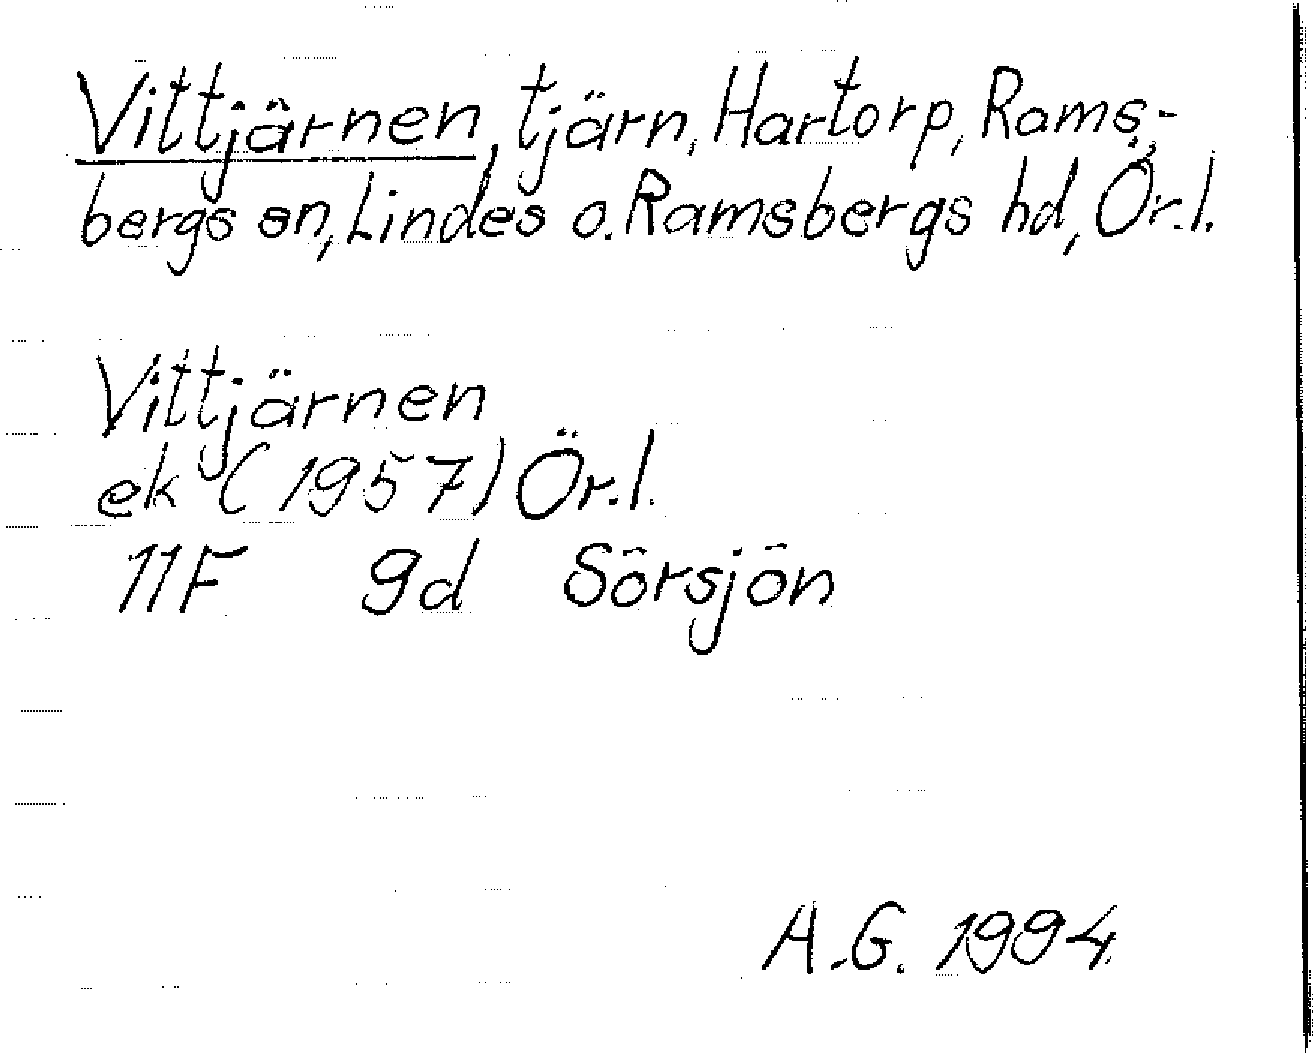 Vittjärnen, tjärn, Hartorp, Rams-
bergs sn, Lindes o. Ramsbergs hd, Ör. l.
Vittjärnen
ek (1957) Ör. l.
11F 9d Sörsjön
A.G. 1994